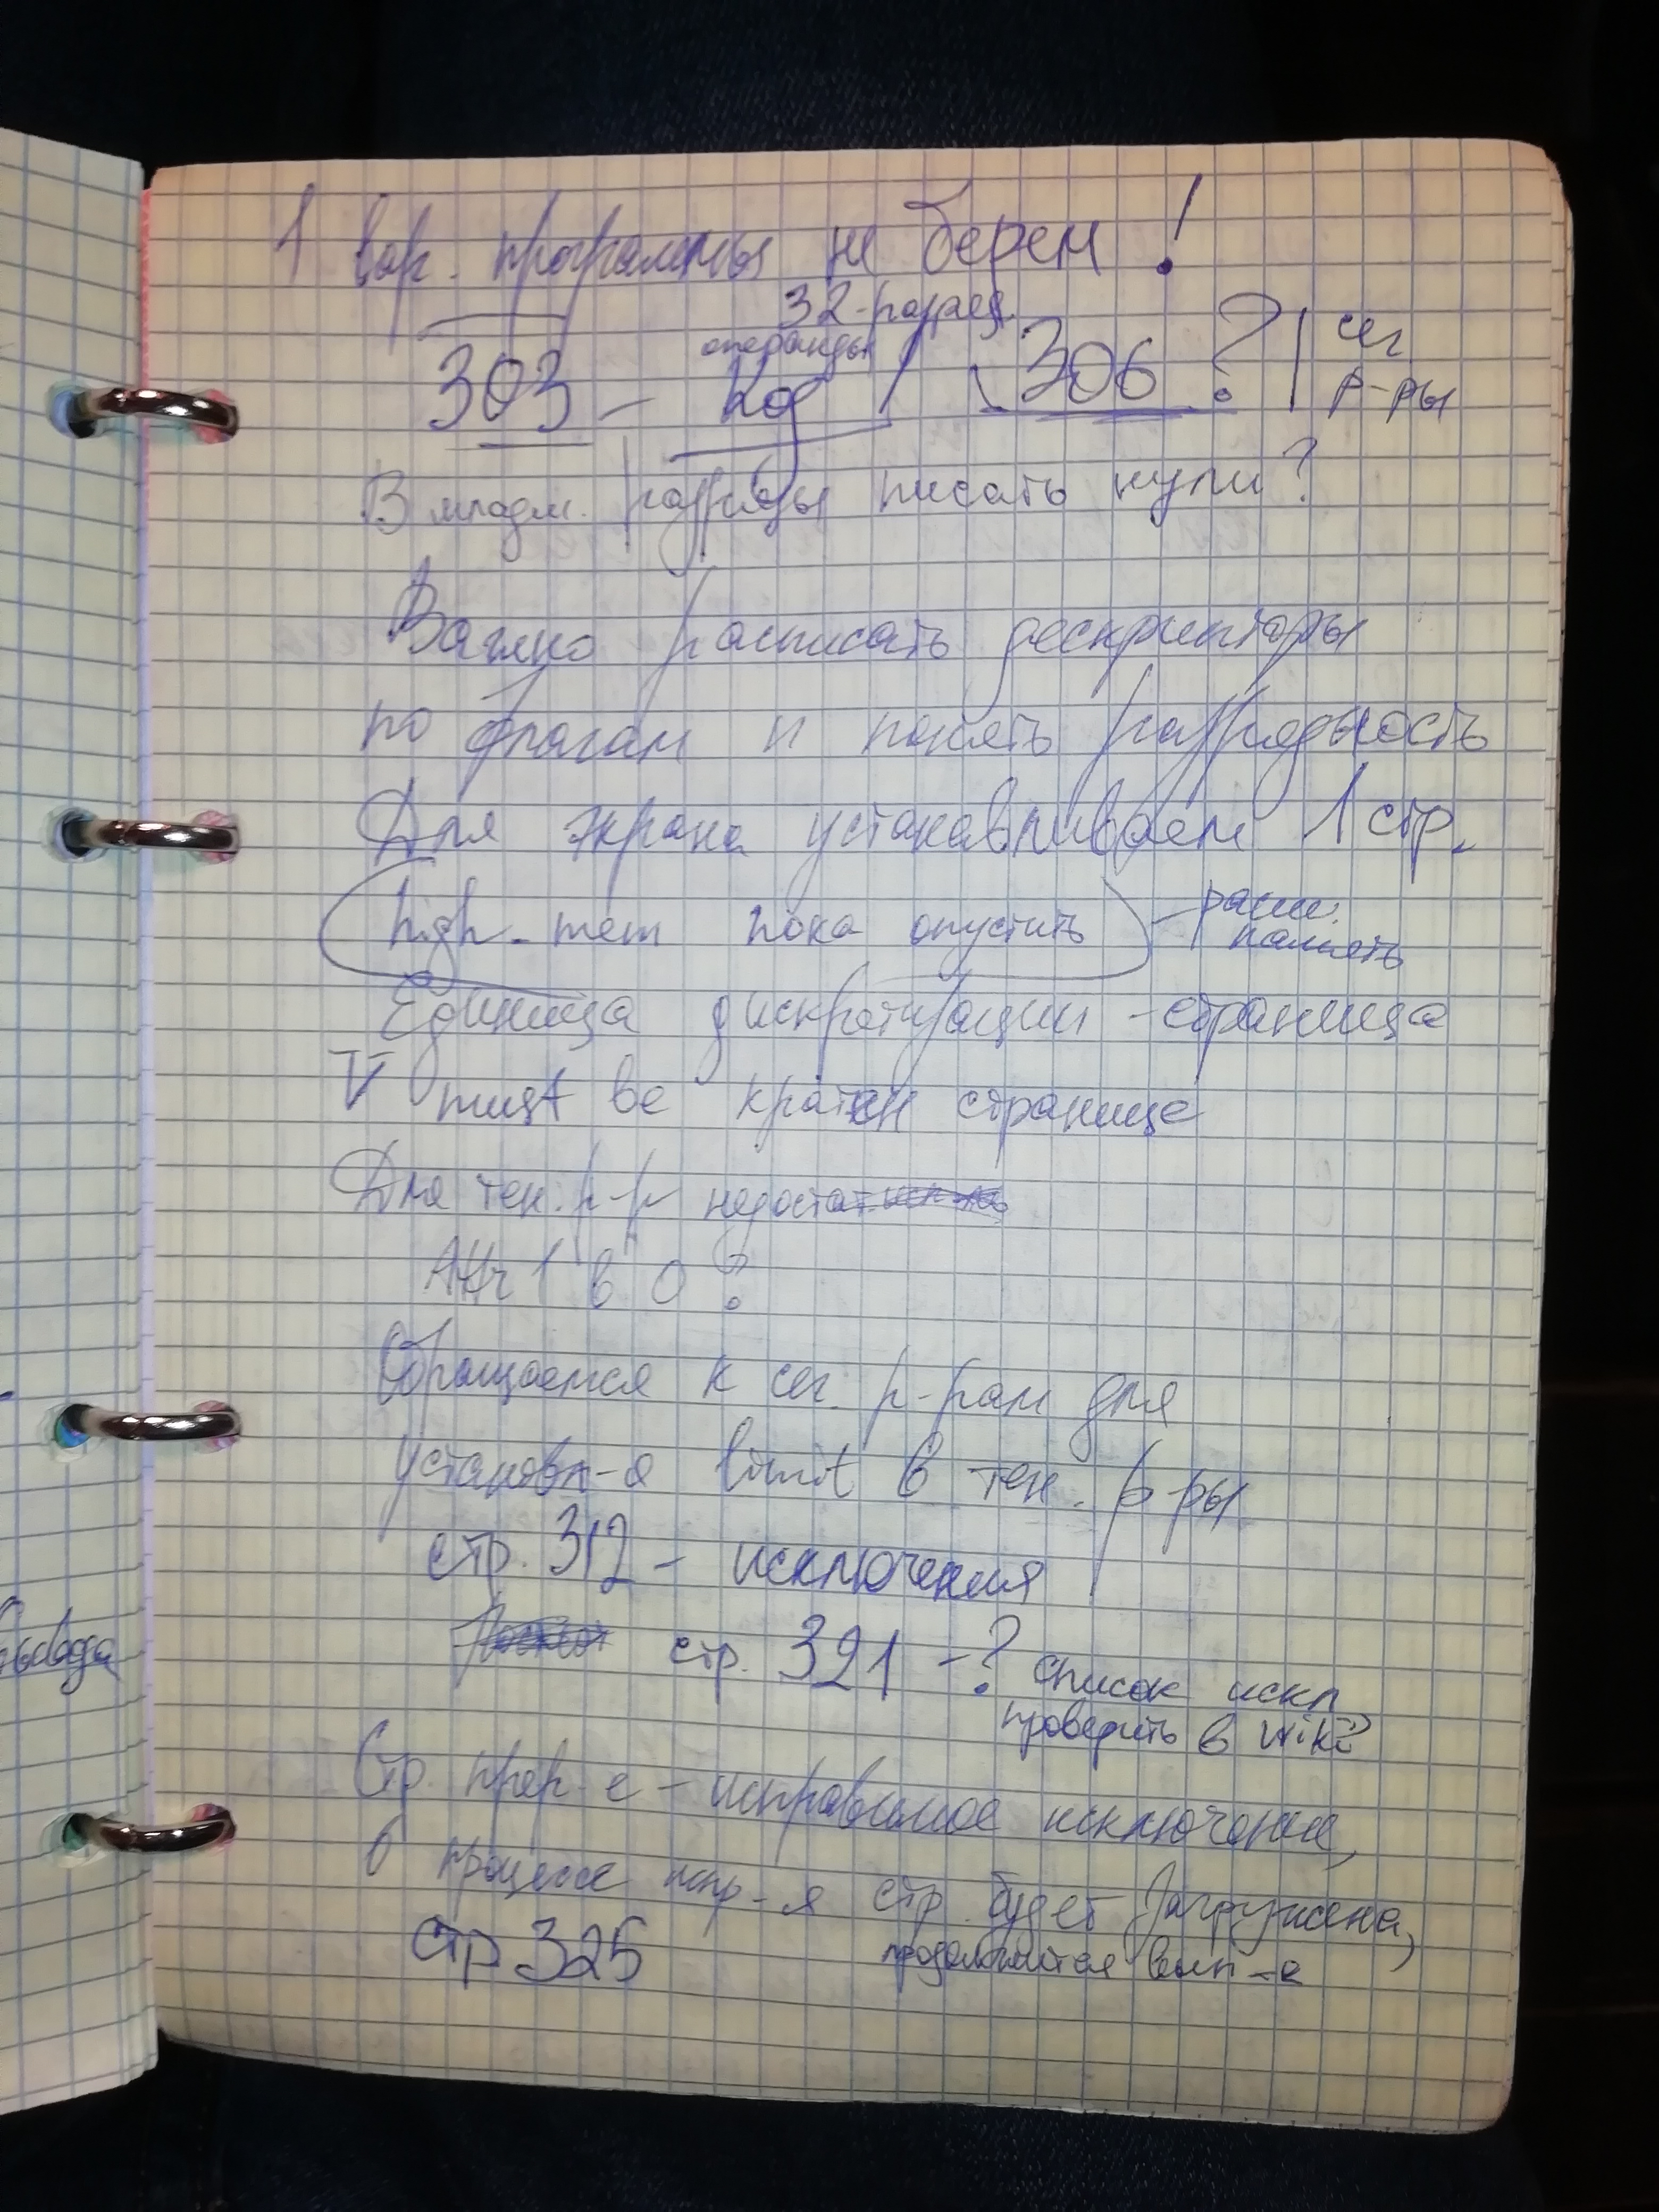 1 вар. программы не берем!
32-разряд
операнды
303 - Код / 306 ? | сег
р-ры
В младш. разряды писать нули?
Важно расписать дескрипторы
по флагам и понять разрядность
Для экрана устанавливаем 1 стр.
high-mem пока опустить - расш.
память
Единица дискретизации - страница
V must be кратен странице
Для тен. р-р недостат
1 в 0 ?
Обращаемся к сег. р-рам для
установл-я limit в тен. р-ры
стр. 312 - исключения
стр. 321 - ? список искл
проверить в wiki
Стр. прер-е - исправимое исключение,
в процессе испр-я стр. будет загружена,
продолжится вып-е
стр 325
вывода